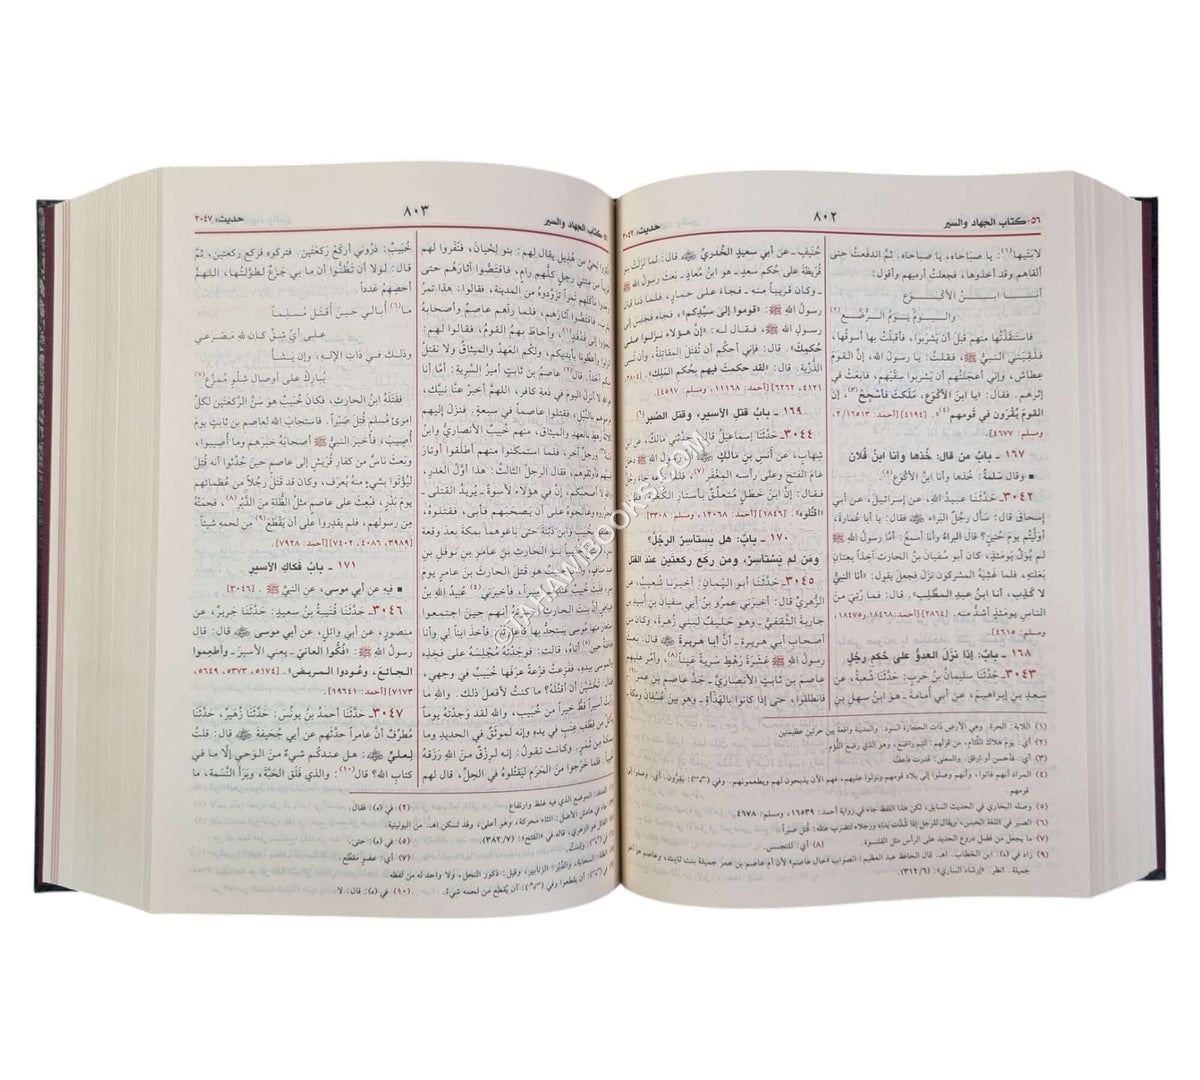 ٥٦- كتاب الجهاد والسير
٨٠٢
حديث: ٣٠٤٢
لابَتَيها(١): يا صَبَاحاه، يا صباحاه. ثمَّ اندفَعتُ حتى
ألقاهم وقد أخذوها، فجعلتُ أرميهم وأقول:
أنــا ابــنُ الأكْــوَع
واليــومُ يــومُ الــرُّضَّــع(٢)
فاستَنقَذْتُها منهم قبلَ أن يَشربوا، فأقبلتُ بها أسوقُها،
فلَقِيَني النبيُّ ﷺ، فقلتُ: يا رسولَ الله، إنَّ القومَ
عِطاش، وإني أعجَلتُهم أن يَشربوا سِقْيَهم، فابعَثْ في
إثرهم. فقال: «يا ابنَ الأكوَع، مَلَكتَ فأسْجِحْ(٣)، إنَّ
القومَ يُقْرَون في قومهم»(٤). [٤١٩٤] [أحمد: ١٦٥١٣/٢،
ومسلم: ٤٦٧٧].
١٦٧ - بابُ من قال: خُذها وأنا ابنُ فُلان
■ وقال سَلمةُ: خُذها وأنا ابنُ الأكْوَع(٥).
٣٠٤٢ـ حَدَّثَنا عبيدُ الله، عن إسرائيلَ، عن أبي
إسحاقَ قال: سأل رجُلٌ البراءَ ﷺ فقال: يا أبا عُمارةَ،
أوَلَّيتُم يومَ حُنَينٍ؟ قال البراءُ وأنا أسمعُ: أمَّا رسولُ الله ﷺ
لم يُوَلِّ يومَئذٍ، كان أبو سُفيانَ بنُ الحارثِ آخِذاً بعِنانِ
بَغلتِه، فلما غَشِيَهُ المشركون نزل فجعلَ يقول: «أنا النبيُّ
لا كَذِب، أنا ابنُ عبدِ المطلِب». قال: فما رُئِيَ منَ
الناسِ يومَئذٍ أشدُّ منه. [٢٨٦٤] [أحمد: ١٨٤٦٨ و١٨٤٧٥،
ومسلم: ٤٦١٥].
١٦٨ - بابٌ: إذا نزلَ العدوُّ على حُكمِ رجُلٍ
٣٠٤٣ـ حَدَّثَنا سليمانُ بنُ حَربٍ: حَدَّثَنا شُعبةُ، عن
سعدِ بنِ إبراهيمَ، عن أبي أُمامةَ ـ هوَ ابنُ سهلِ بنِ
حُنَيفٍ ـ عن أبي سعيدٍ الخُدريِّ ﷺ قال: لما نَزَلَتْ بنو
قُرَيظةَ على حُكمِ سعدٍ ـ هو ابنُ مُعاذٍ ـ بعثَ رسولُ الله ﷺ
ـ وكان قريباً منه ـ فجاءَ على حمارٍ، فلما دَنا قال
رسولُ الله ﷺ: «قوموا إلى سيِّدِكم»، فجاء فجلَسَ إلى
رسولِ الله ﷺ، فقال له: «إنَّ هؤلاء نزَلوا على
حُكمِكَ». قال: فإني أحكُم أن تُقتَلَ المقاتِلةُ، وأن تُسبى
الذُّرِّية. قال: «لقد حكمتَ فيهم بحُكمِ المَلِك». [٣٨٠٤،
٤١٢١، ٦٢٦٢] [أحمد: ١١١٦٨، ومسلم: ٤٥٩٧].
١٦٩ - بابُ قتلِ الأسير، وقتلِ الصَّبر(٦)
٣٠٤٤ـ حَدَّثَنا إسماعيلُ قال: حدَّثني مالكٌ، عن ابنِ
شِهابٍ، عن أنسِ بنِ مالكٍ ﷺ أنَّ رسولَ الله ﷺ دخلَ
عامَ الفتحِ وعلى رأسِه المِغْفَر(٧)، فلما نزعَه جاء رجُلٌ
فقال: إنَّ ابنَ خَطَلٍ مُتعلِّقٌ بأستارِ الكعبة، فقال:
«اقتُلوه». [١٨٤٦] [أحمد: ١٢٠٦٨، ومسلم: ٣٣٠٨].
١٧٠ - بابٌ: هل يَستأسِرُ الرجُلُ؟
ومَن لم يَستأسِرْ، ومن ركع ركعتين عند القتل
٣٠٤٥ـ حَدَّثَنا أبو اليَمانِ: أخبرَنا شُعيبٌ، عن
الزُّهريِّ قال: أخبرَني عمرُو بنُ أبي سفيانَ بنِ أسِيدِ بنِ
جاريةَ الثَّقَفيُّ ـ وهو حَليفٌ لبني زُهرةَ، وكان من
أصحابِ أبي هريرةَ ـ أنَّ أبا هريرةَ ﷺ قال: بَعثَ
رسولُ الله ﷺ عَشَرَةَ رَهْطٍ سَرِيةً عَيناً(٨)، وأمَّر عليهم
عاصمَ بنَ ثابتٍ الأنصاريَّ ـ جَدَّ عاصمِ بنِ عمر(٩) ـ
فانطلَقوا، حتى إذا كانوا بالهَدْأةِ ـ وهو بينَ عُسْفانَ ومكةَ ـ
(١) اللابة: الحرة، وهي الأرض ذات الحجارة السّود. والمدينة واقعة بين حرتين عظيمتين.
(٢) أي: يوم هلاك اللئام، من قولهم: لئيم راضع، وهو الذي رضع اللؤم.
(٣) أي: فأحسن أو ارفق. والمعنى: قدرت فاعف.
(٤) المراد أنهم فاتوا، وأنهم وصلوا إلى بلاد قومهم ونزلوا عليهم، فهم الآن يذبحون لهم ويطعمونهم. وفي: يَقِرُّون، أي: وصلوا إلى
قومهم.
(٥) وصله البخاري في الحديث السابق، لكن هذا اللفظ جاء في رواية أحمد: ١٦٥٣٩، ومسلم: ٤٦٧٨.
(٦) الصبر في اللغة الحبس، ويقال للرجل إذا شُدَّت يداه ورجلاه لتضرب عنقه: قُتل صبراً.
(٧) ما يجعل من فضل دروع الحديد على الرأس مثل القلنسوة. (٨) أي: للتجسس.
(٩) زاد في (ه): ابن الخطاب. اهـ. قال الحافظ عبد العظيم: الصواب «خال عاصم» لأن أم عاصم بن عمر جميلة بنت ثابت، وعاصم هو أخو
جميلة. انظر. «إرشاد الساري»: (٣١٢/٦).
٥٦- كتاب الجهاد والسير
٨٠٣
حديث: ٣٠٤٧
ذُكروا لِحَيٍّ من هُذَيلٍ يقال لهم: بنو لِحْيانَ، فنَفَروا لهم
قريباً من مِئتَي رجلٍ كلُّهم رامٍ، فاقتَصُّوا آثارَهم حتى
وجدوا مأكلَهم تمراً تَزوَّدوه من المدينة، فقالوا: هذا تمرُ
يثربَ، فاقتصُّوا آثارَهم، فلما رآهم عاصمٌ وأصحابه
لجؤوا إلى فَدْفَدٍ(١)، وأحاطَ بهمُ القومُ، فقالوا لهم:
انزلوا وأعطُونا بأيديكم، ولكُم العَهدُ والميثاقُ ولا نَقتلُ
منكم أحداً. قال(٢) عاصمُ بن ثابتٍ أميرُ السَّرِية: أمَّا أنا
فوالله لا أنزلُ اليومَ في ذمةِ كافرٍ، اللهمَّ أخبِر عنَّا نبيَّك،
فرمَوهم بالنَّبل، فقتلوا عاصماً في سبعةٍ. فنزل إليهم
ثلاثةُ رهطٍ بالعهدِ والميثاق، منهم خُبَيبٌ الأنصاريُّ وابنُ
دَثِنَةَ ورجلٌ آخر، فلما استمكنوا منهم أطلَقوا أوتارَ
قِسِيِّهم فأوثقوهم، فقال الرجلُ الثالث: هذا أوَّلُ الغدر،
والله لا أصحَبُكم، إنَّ في هؤلاءِ لأسوة ـ يُريدُ القتلى ـ
فجرَّروه وعالجوهُ على أن يَصحبَهم فأبى، فقتلوهُ،
فانطلَقوا بخُبيبٍ وابنِ دَثِنةَ حتى باعوهما بمكةَ بعد وقعةِ
بدرٍ، فابتاعَ خُبيباً بنو الحارثِ بنِ عامرِ بنِ نوفلِ بنِ
عبدِ منافٍ، وكان خُبيبٌ هو قتلَ الحارثَ بنَ عامرٍ يومَ
بدرٍ، فلبثَ خُبيبٌ عندهم أسيراً. فأخبرني(٤) عُبيدُ الله بنُ
عياضٍ أنَّ بنتَ الحارثِ أخبرَتْه أنهم حينَ اجتمعوا
استعارَ منها مُوسى يستحِدُّ بها فأعارتْه، فأخذ ابناً لي وأنا
غافلةٌ حين(٥) أتاهُ، قالت: فوجَدْتُه مُجلِسَهُ على فَخِذِهِ
والموسى بيدِهِ، ففَزِعتُ فَزعةً عَرَفها خُبيبٌ في وجهي،
فقال: تَخْشَيْنَ أن أقتُلَهُ؟ ما كنتُ لأفعلَ ذلك. واللهِ ما
رأيتُ أسيراً قطُّ خيراً من خُبيبٍ، والله لقد وَجَدْتُه يوماً
يأكلُ من قِطفِ عِنبٍ في يدهِ وإنه لمُوثَقٌ في الحديد وما
بمكةَ من ثمرٍ. وكانت تقولُ: إنه لرِزقٌ منَ اللهِ رَزَقَهُ
خُبيباً. فلما خَرَجوا منَ الحَرَمِ ليَقتلوهُ في الحِلِّ، قال لهم
خُبَيبٌ: ذَروني أركَعْ ركعتين. فتركوه فركع ركعتين، ثمَّ
قال: لَوْلا أن تَظُنُّوا أنَّ ما بي جَزَعٌ لطَوَّلتُها، اللهمَّ
أحصِهِمْ عَدَداً.
ما(٦) أُبالي حينَ أُقتَلُ مُسْلِماً
على أيِّ شِقٍّ كان لله مَصْرَعي
وذلك في ذاتِ الإلهِ، وإن يَشَأْ
يُبارِكْ على أوصالِ شِلوٍ مُمزَّعِ(٧)
فقتَلَهُ ابنُ الحارِث، فكان خُبَيبٌ هوَ سَنَّ الرَّكعتَين لكلِّ
امرئٍ مُسلمٍ قُتلَ صَبْراً. فاستجاب الله لعاصم بن ثابتٍ يومَ
أُصِيبَ، فأخبَرَ النبيُّ ﷺ أصحابَهُ خبَرَهم وما أُصيبوا،
وبَعَثَ ناسٌ من كفارِ قُرَيشٍ إلى عاصمٍ حينَ حُدِّثوا أنه قُتِلَ
ليُؤتَوا بشيءٍ منه يُعرَف، وكان قد قَتل رجُلاً من عُظمائهم
يومَ بَدْرٍ، فبُعِثَ على عاصمٍ مثلُ الظُّلَّةِ منَ الدَّبْرِ(٨)، فحمَتْهُ
من رسولِهم، فلم يَقْدِروا على أن يَقْطَعَ(٩) مِن لحمِهِ شيئاً.
[٣٩٨٩، ٤٠٨٦، ٧٤٠٢] [أحمد: ٧٩٢٨].
١٧١ - بابُ فَكاكِ الأسير
■ فيه عن أبي موسى، عن النبيِّ ﷺ. [٣٠٤٦].
٣٠٤٦ـ حَدَّثَنا قُتَيبةُ بنُ سعيدٍ: حَدَّثَنا جَريرٌ، عن
منصورٍ، عن أبي وائلٍ، عن أبي موسى ﷺ قال: قال
رسولُ الله ﷺ: «فُكُّوا العانيَ ـ يعني الأسيرَ ـ وأطعِموا
الجائعَ، وعُودوا المريضَ». [٥١٧٤، ٥٣٧٣، ٥٦٤٩،
٧١٧٣] [أحمد: ١٩٦٤١].
٣٠٤٧ـ حَدَّثَنا أحمدُ بنُ يونُسَ: حَدَّثَنا زُهَيرٌ، حَدَّثَنا
مُطَرِّفٌ أنَّ عامراً حدَّثهم عن أبي جُحَيفةَ ﷺ قال: قلتُ
لِعليٍّ ﷺ: هل عندَكم شيءٌ منَ الوَحي إلَّا ما في
كتابِ الله؟ قال(١٠): والذي فَلَقَ الحَبَّةَ، وبَرَأَ النَّسمةَ، ما
(١) الفدفد: الموضع الذي فيه غلظ وارتفاع.
(٢) في (ه): فقال.
(٥) في (ه): حتى.
(٧) أي: عضو مقطّع.
ذكور النحل، ولا واحد له من لفظه
(١٠) في (ه): قال: لا.
©TAHAWIBOOKS.COM